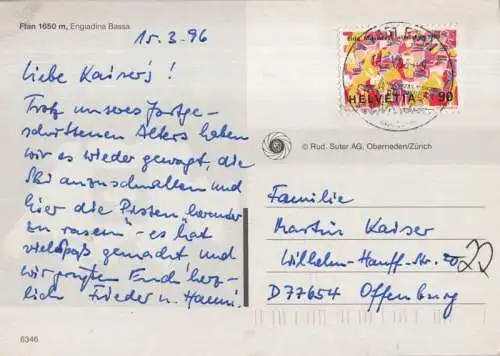 Ftan 1650 m, Engiadina Bassa
15.3.96
Liebe Kaiser's!
Trotz unseres fortge-
schrittenen Alters haben
wir es wieder gewagt, die
Ski anzuschnallen und
hier die Pisten "herunter
zu rasen" - es hat
viel Spaß gemacht und
wir grüßen Euch herz-
lich Frieder u. Hanni.
6346
HELVETIA 90
© Rud. Suter AG, Oberneden/Zürich
Familie
Martin Kaiser
Wilhelm-Hauff-Str. 22
D 77654 Offenburg